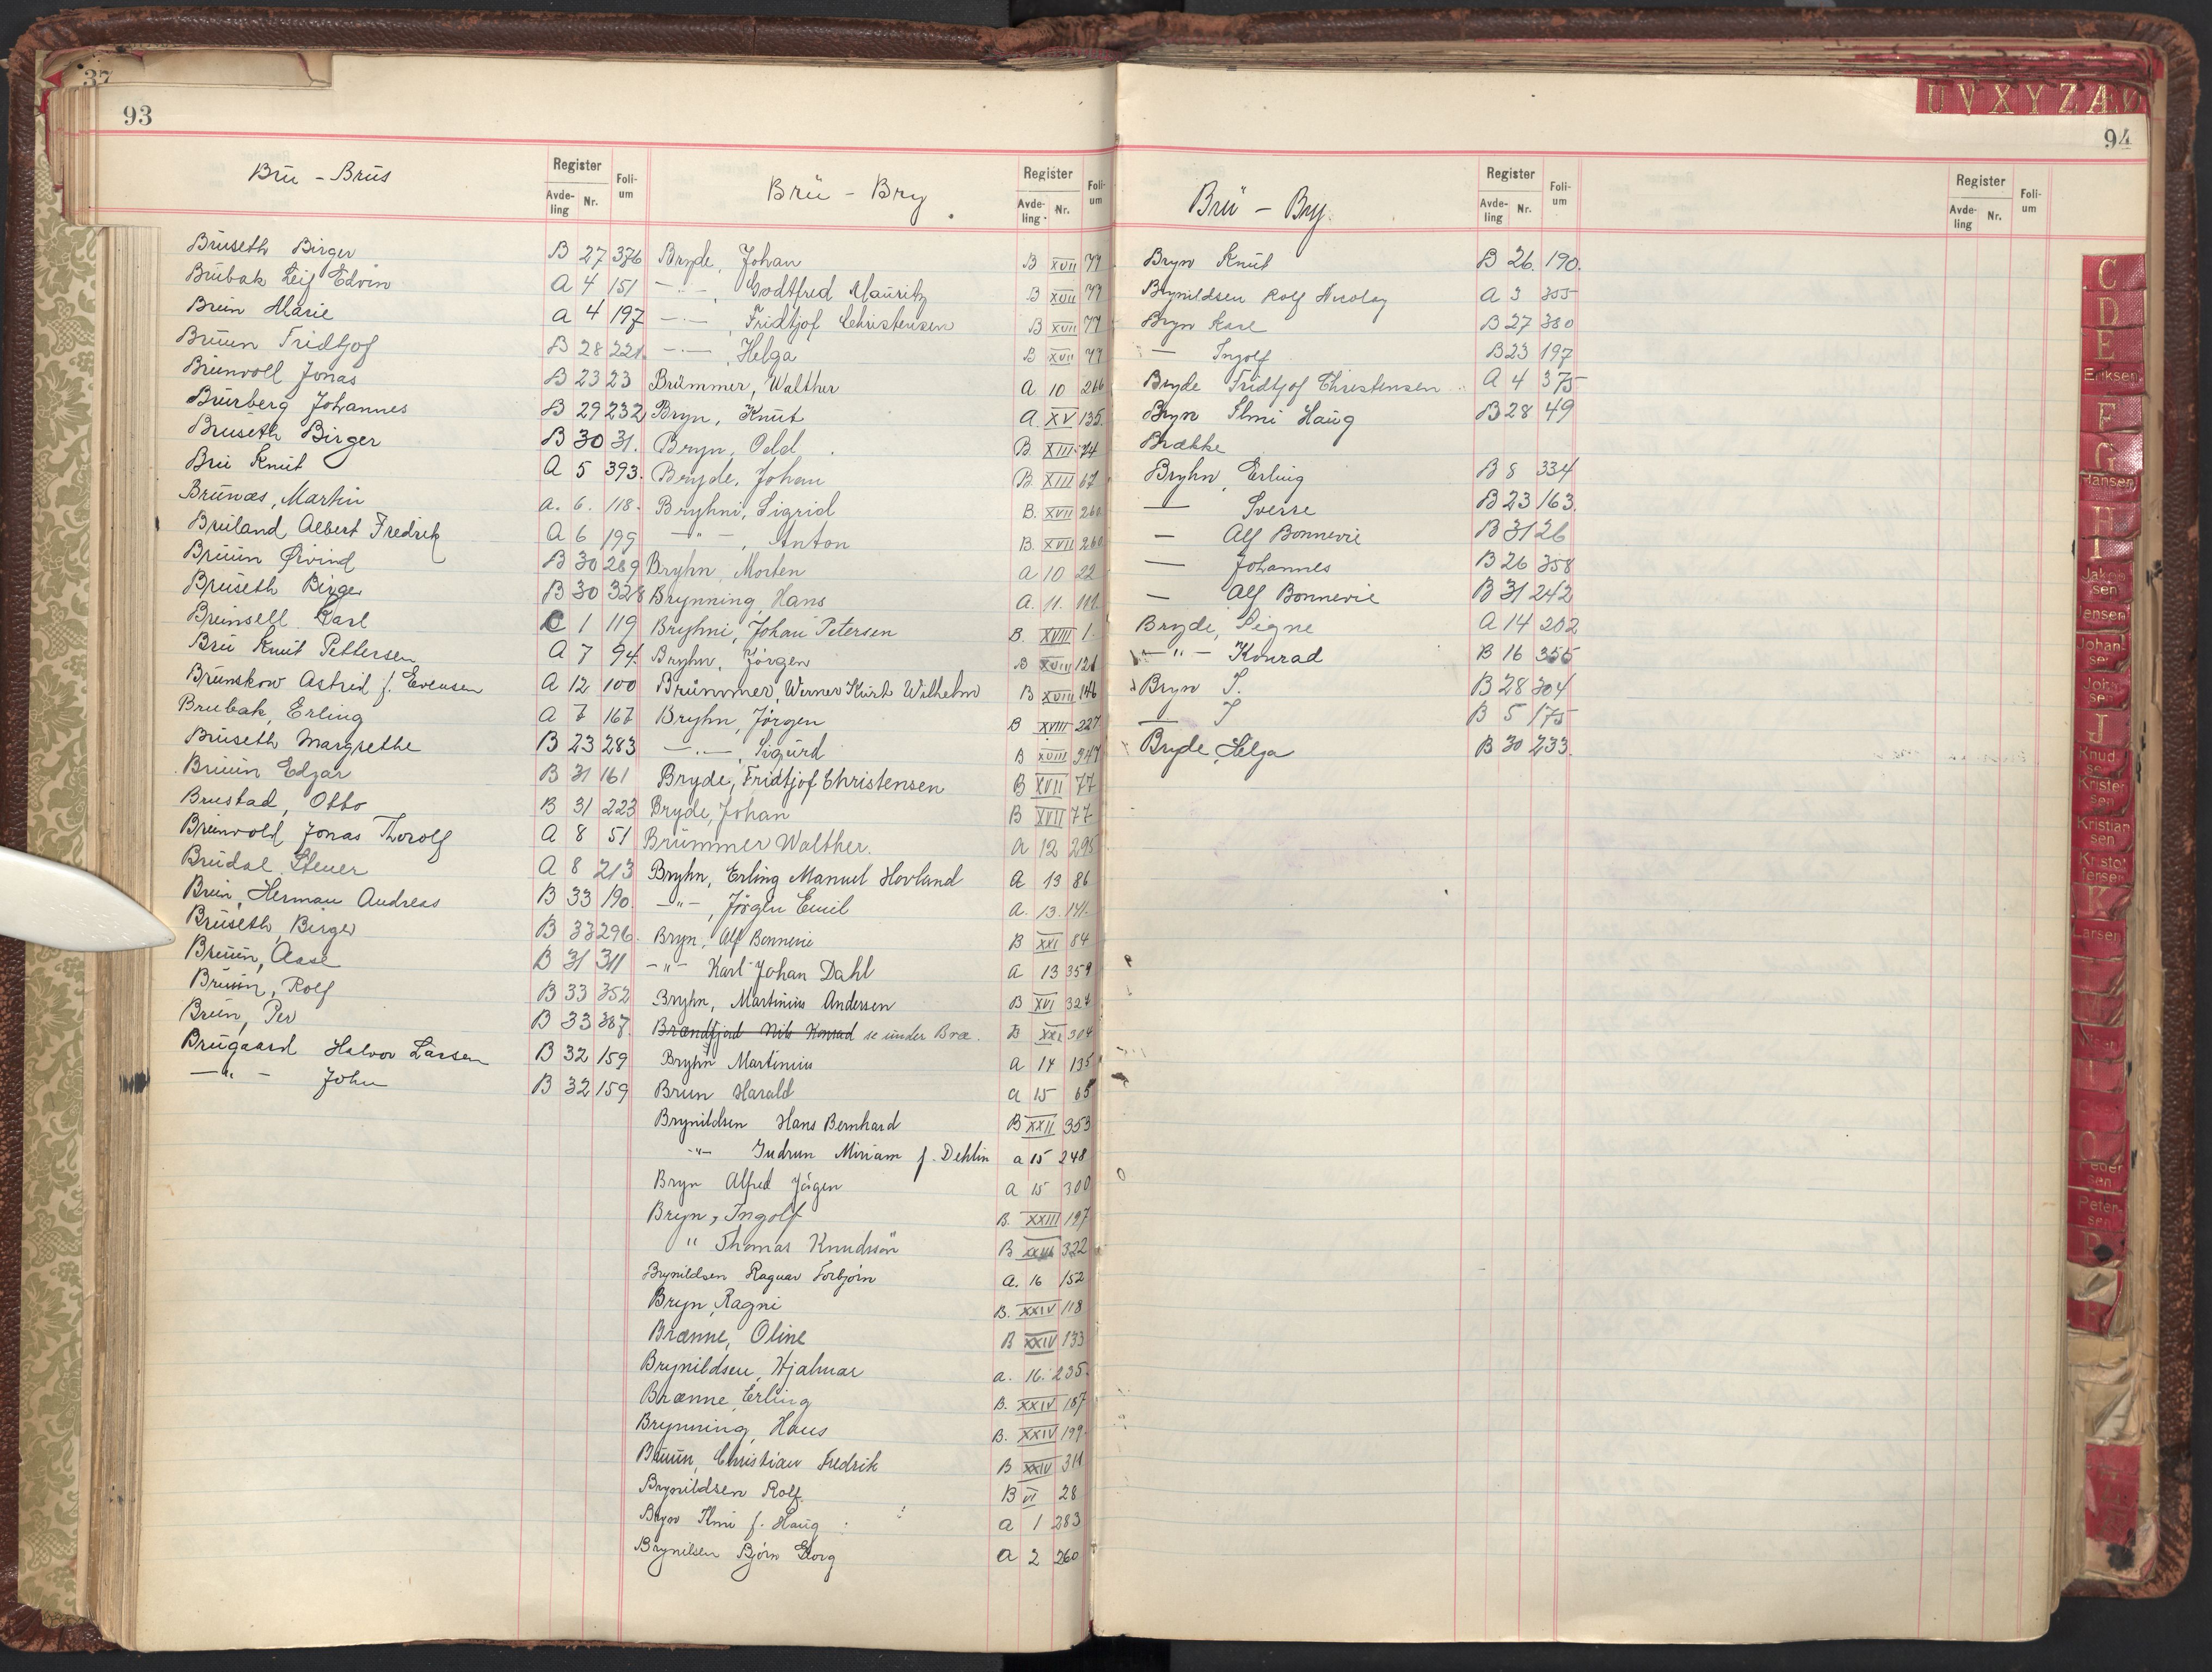 37
93
Bru - Brus
Register
Avde-ling Nr.
Foli-um
Bruseth Birger B 27 376
Brubak Leif Edvin A 4 151
Brun Marie A 4 197
Bruun Fridtjof B 28 221.
Brunvoll Jonas B 23 23
Brurberg Johannes B 29 232
Bruseth Birger B 30 31.
Bru Knut A 5 393.
Brunæs, Martin A. 6. 118.
Bruland Albert Fredrik A 6 199
Bruun Øivind B 30 289
Bruseth Birger B 30 328
Brunsell Karl C 1 119
Bru Knut Pettersen A 7 94.
Brunskow Astrid f. Evensen A 12 100
Brubak, Erling A 7 167
Bruseth Margrethe B 23 283
Bruun Edgar B 31 161
Brustad, Otto B 31 223
Brunvold Jonas Thorolf A 8 51
Brudal Stener A 8 213
Brun, Herman Andreas B 33 190.
Bruseth, Birger B 33 296.
Bruun, Aase B 31 311
Bruun, Rolf B 33 352
Brun, Per B 33 387.
Brugaard Halvor Larsen B 32 159
—"— John B 32 159
Brü - Bry
Register
Avde-ling Nr.
Foli-um
Bryde, Johan B XVII 77
—"—, Godtfred Mauritz B XVII 77
—"—, Fridtjof Christensen B XVII 77
—"—, Helga B XVII 77
Brümmer, Walther A 10 266
Bryn, Knut A. XV 135.
Bryn, Odd B XIII 74
Bryde, Johan B XIII 67
Bryhni, Sigrid B. XVII 260
—"—, Anton B. XVII 260
Bryhn, Morten A 10 22
Brynning, Hans A. 11. 111.
Bryhni, Johan Petersen B. XVIII 1.
Bryhn, Jörgen B XVIII 121
Brümmer, Werner Kurt Wilhelm B XVIII 146
Bryhn, Jörgen B XVIII 227
—"—, Sigurd B XVIII 347
Bryde, Fridtjof Christensen B XVII 77
Bryde, Johan B XVII 77
Brümmer Walther. A 12 295
Bryhn, Erling Manuel Hovland A 13 86
—"—, Jörgen Emil A. 13. 141.
Bryn, Alf Bonnevie B XXI 84
—"— Karl Johan Dahl A 13 359
Bryhn, Martinius Andersen B XVI 327
Brændfjord Nils Konrad se under Bræ. B XXI 304
Bryhn Martinius A 14 135
Brun Harald A 15 65
Brynildsen Hans Bernhard B XXII 353
—"— Gudrun Miriam f. Dehlin A 15 248
Bryn Alfred Jörgen A 15 300
Bryn, Ingolf B. XXIII 197
" Thomas Knudssön B 322
Brynildsen Ragnar Torbjörn A. 16 152
Bryn, Ragni B. XXIV 118
Brænne, Oline B XXIV 133
Brynildsen, Hjalmar A. 16. 235.
Brænne, Erling B. XXIV 187
Brynning, Hans B. XXIV 199.
Bruun, Christian Fredrik B XXIV 311
Brynildsen Rolf. B VI 28
Bryn Ilmi f. Haug A 1 283
Brynilsen Bjørn Georg A 2 260
94
Brü - Bry.
Register
Avde-ling Nr.
Foli-um
Bryn Knut B 26. 190.
Brynildsen Rolf Nicolay A 3 355
Bryn Kare B 27 380
— Ingolf B 23 197
Bryde Fridtjof Christensen A 4 375
Bryn Ilmi Haug B 28 49
Brække
Bryhn, Erling B 8 334
— Sverre B 23 163.
— Alf Bonnevie B 31 26
— Johannes B 26 358
— Alf Bonnevie B 31 242
Bryde, Signe A 14 202
—"— Konrad B 16 355
Bryn I. B 28 304
— I B 5 175
Bryde, Helga B 30 233.
Register
Avde-ling Nr.
Foli-um
U V X Y Z Æ Ø
C
D
E
Eriksen
F
G
Hansen
H
I
Jakob-sen
Jensen
Johan-sen
John-sen
J
Knud-sen
Kristen-sen
Kristian-sen
Kristof-fersen
K
Larsen
Peder-sen
Peter-sen